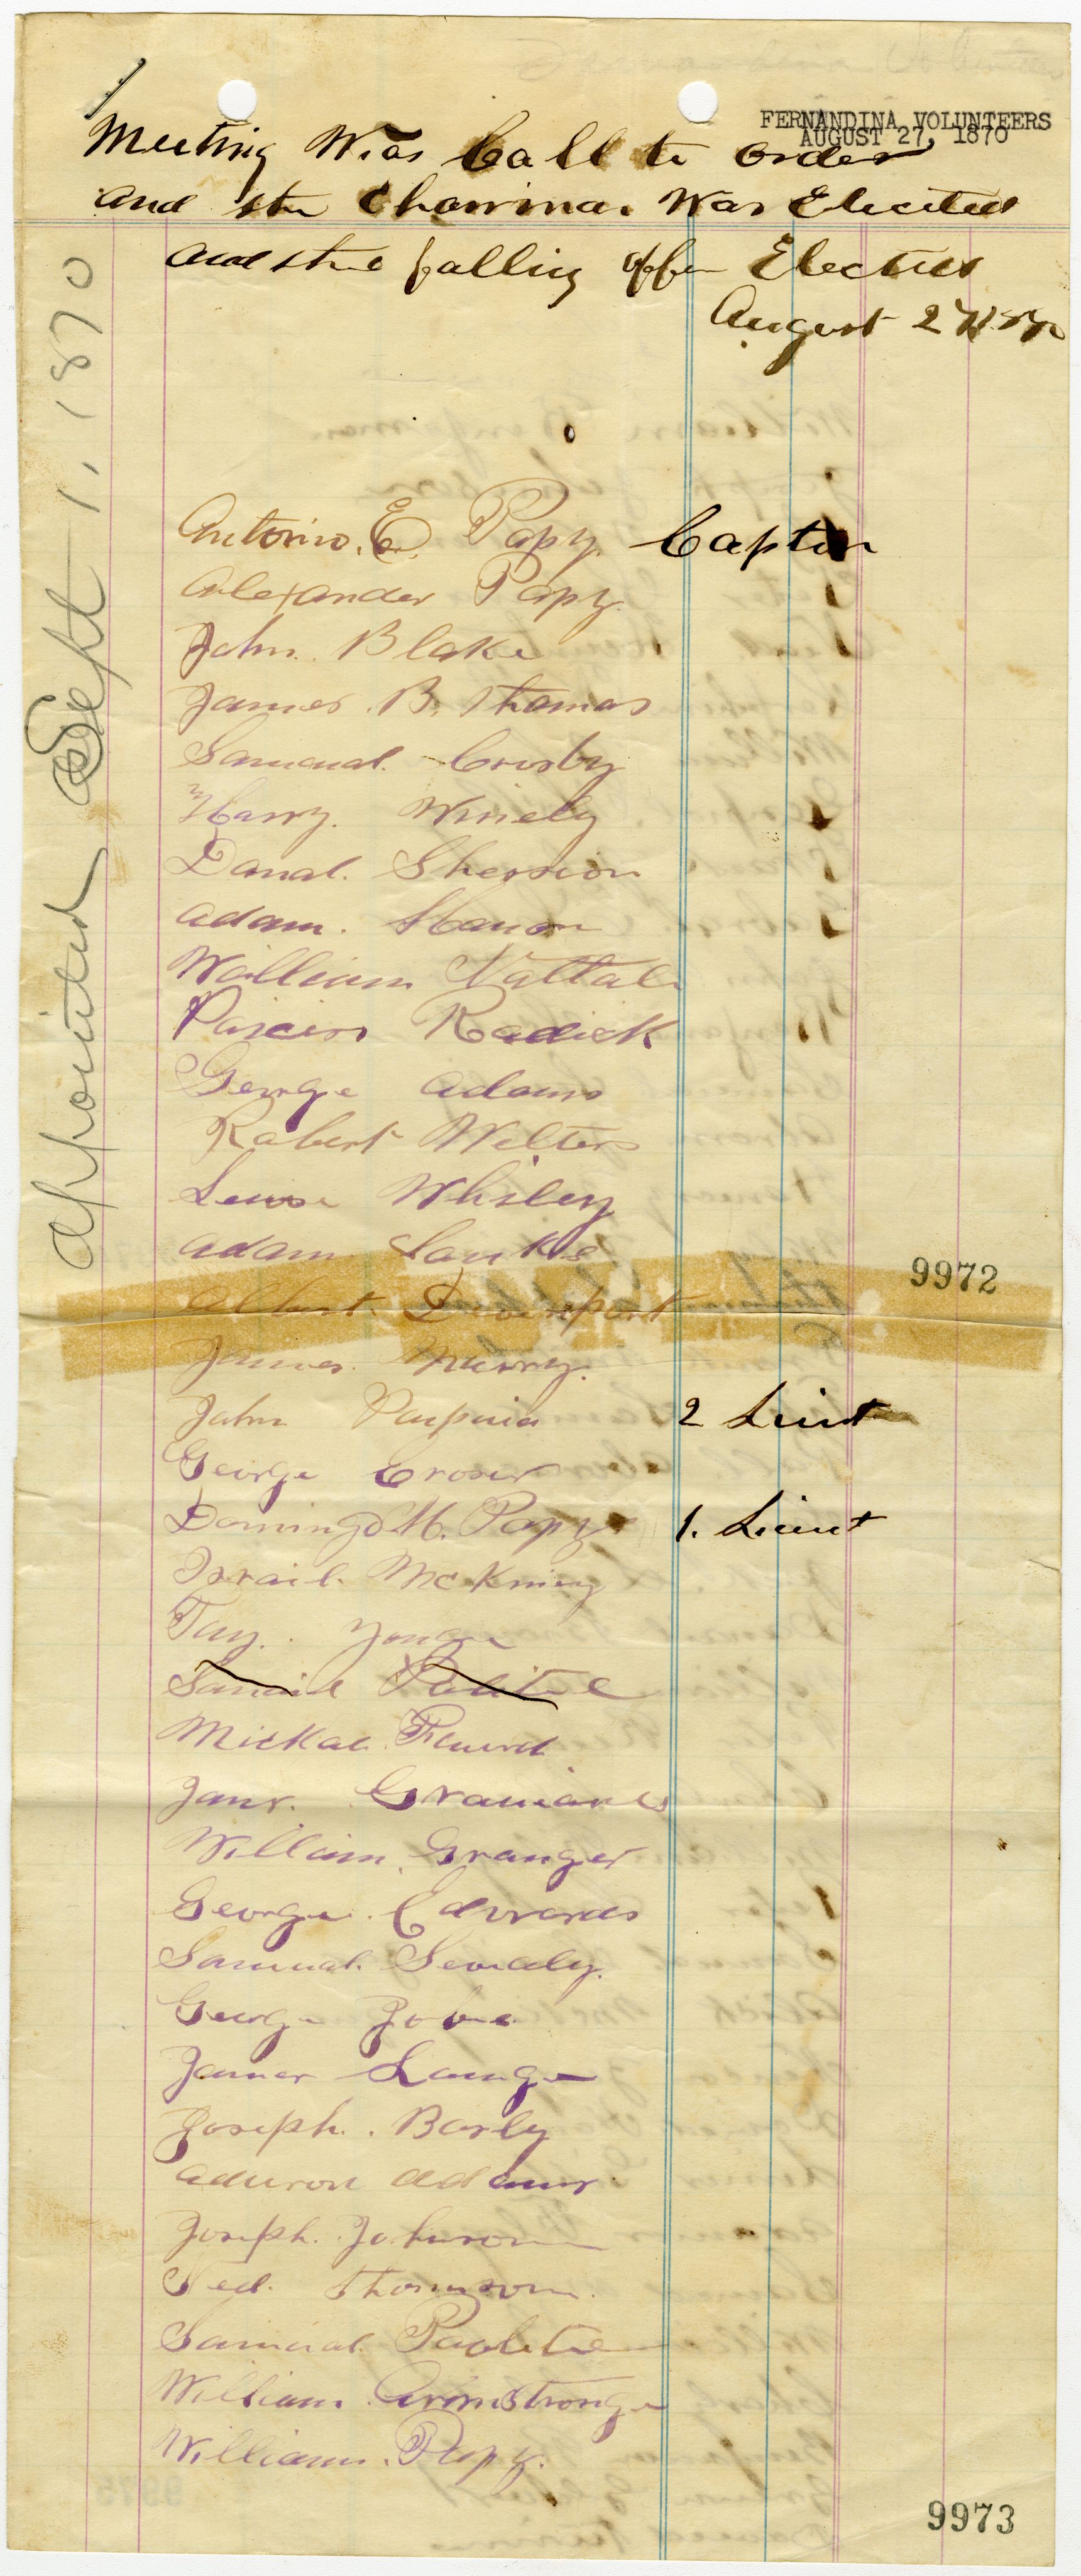 FERNANDINA VOLUNTEERS
AUGUST 27, 1870
Meeting Was Call to order
and the Chairman Was Elected
and the falling offer Elected
August 27 1870
appointed Sept 1, 1870
Antonio. E. Papy. Captin
Alexander Papy.
John. Blake
James. B. Thomas
Samual. Crosby
Harry. Winely
Danal. Shession
Adam.
William Nattale
Radick
George Adams
Robert Welters
Lewse Whisley
Adam
Albert Davenport
James. Murry.
John Paupina 2 Lieut
George Croser
Domingo M. Papy 1. Lieut
Israil. McKniny
Tay. Yonge
Samaid
Mickal
Janr.
William. Granger
George. Edwards
Samual.
George
James Lange
Joseph. Barly
Adams
Joseph. Johnson
Ned. Thomson.
Samual. Paulete
William Armstronge
William. Papy.
9972
9973